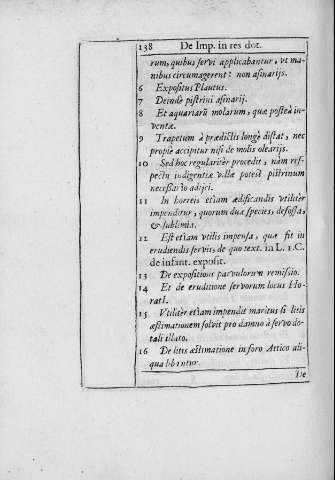 138 De Imp. in res dot.
rum, quibus servi applicabantur, vt ma-
nibus circumagerent: non asinarijs.
6 Expositus Plautus.
7 Deindè pistrini asinarij.
8 Et aquariarũ molarum, quæ posteà in-
ventæ.
9 Trapetum à prædictis longè distat, nec
propiè accipitur nisi de molis olearijs.
10 Sed hoc regulariter procedit, nàm res-
pectu indigentiæ villæ potest pistrinum
necessario adijci.
11 In horreis etiam ædificandis vtiliter
impenditur, quorum duæ species, defossa,
& sublimia.
12 Est etiam vtilis impensa, quæ fit in
erudiendis servis, de quo text. in L. 1. C.
de infant. exposit.
13 De expositione parvulorum remissio.
14 Et de eruditione servorum locus Ho-
ratI.
15 Vtiliter etiam impendit maritus si litis
æstimationem solvit pro damno à servo do-
tali illato.
16 De litis æstimatione in foro Attico ali-
qua libantur.
De